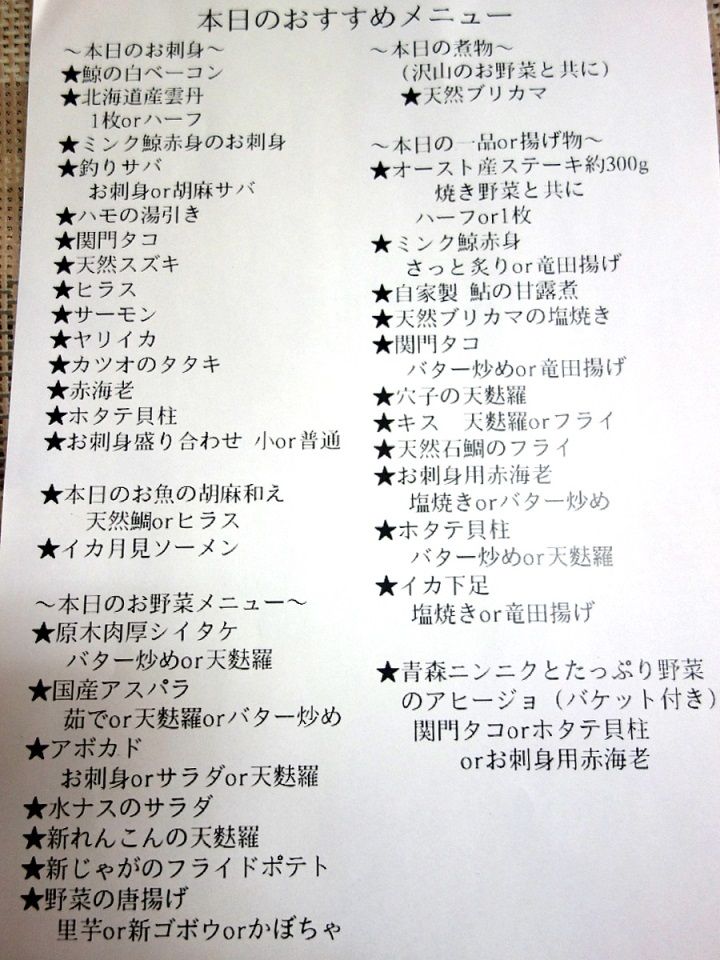 本日のおすすめメニュー
～本日のお刺身～
★鯨の白ベーコン
★北海道産雲丹
1枚orハーフ
★ミンク鯨赤身のお刺身
★釣りサバ
お刺身or胡麻サバ
★ハモの湯引き
★関門タコ
★天然スズキ
★ヒラス
★サーモン
★ヤリイカ
★カツオのタタキ
★赤海老
★ホタテ貝柱
★お刺身盛り合わせ 小or普通
★本日のお魚の胡麻和え
天然鯛orヒラス
★イカ月見ソーメン
～本日のお野菜メニュー～
★原木肉厚シイタケ
バター炒めor天麩羅
★国産アスパラ
茹でor天麩羅orバター炒め
★アボカド
お刺身orサラダor天麩羅
★水ナスのサラダ
★新れんこんの天麩羅
★新じゃがのフライドポテト
★野菜の唐揚げ
里芋or新ゴボウorかぼちゃ
～本日の煮物～
（沢山のお野菜と共に）
★天然ブリカマ
～本日の一品or揚げ物～
★オースト産ステーキ約300g
焼き野菜と共に
ハーフor1枚
★ミンク鯨赤身
さっと炙りor竜田揚げ
★自家製 鮎の甘露煮
★天然ブリカマの塩焼き
★関門タコ
バター炒めor竜田揚げ
★穴子の天麩羅
★キス 天麩羅orフライ
★天然石鯛のフライ
★お刺身用赤海老
塩焼きorバター炒め
★ホタテ貝柱
バター炒めor天麩羅
★イカ下足
塩焼きor竜田揚げ
★青森ニンニクとたっぷり野菜
のアヒージョ（バケット付き）
関門タコorホタテ貝柱
orお刺身用赤海老